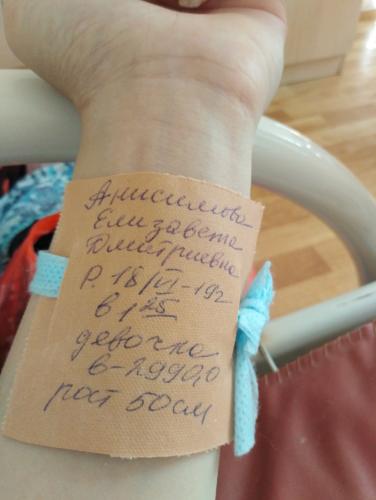 Анисимова
Елизавета
Дмитриевна
Р. 18/VI-192
в 1 25
девочка
в-2990,0
рост 50см